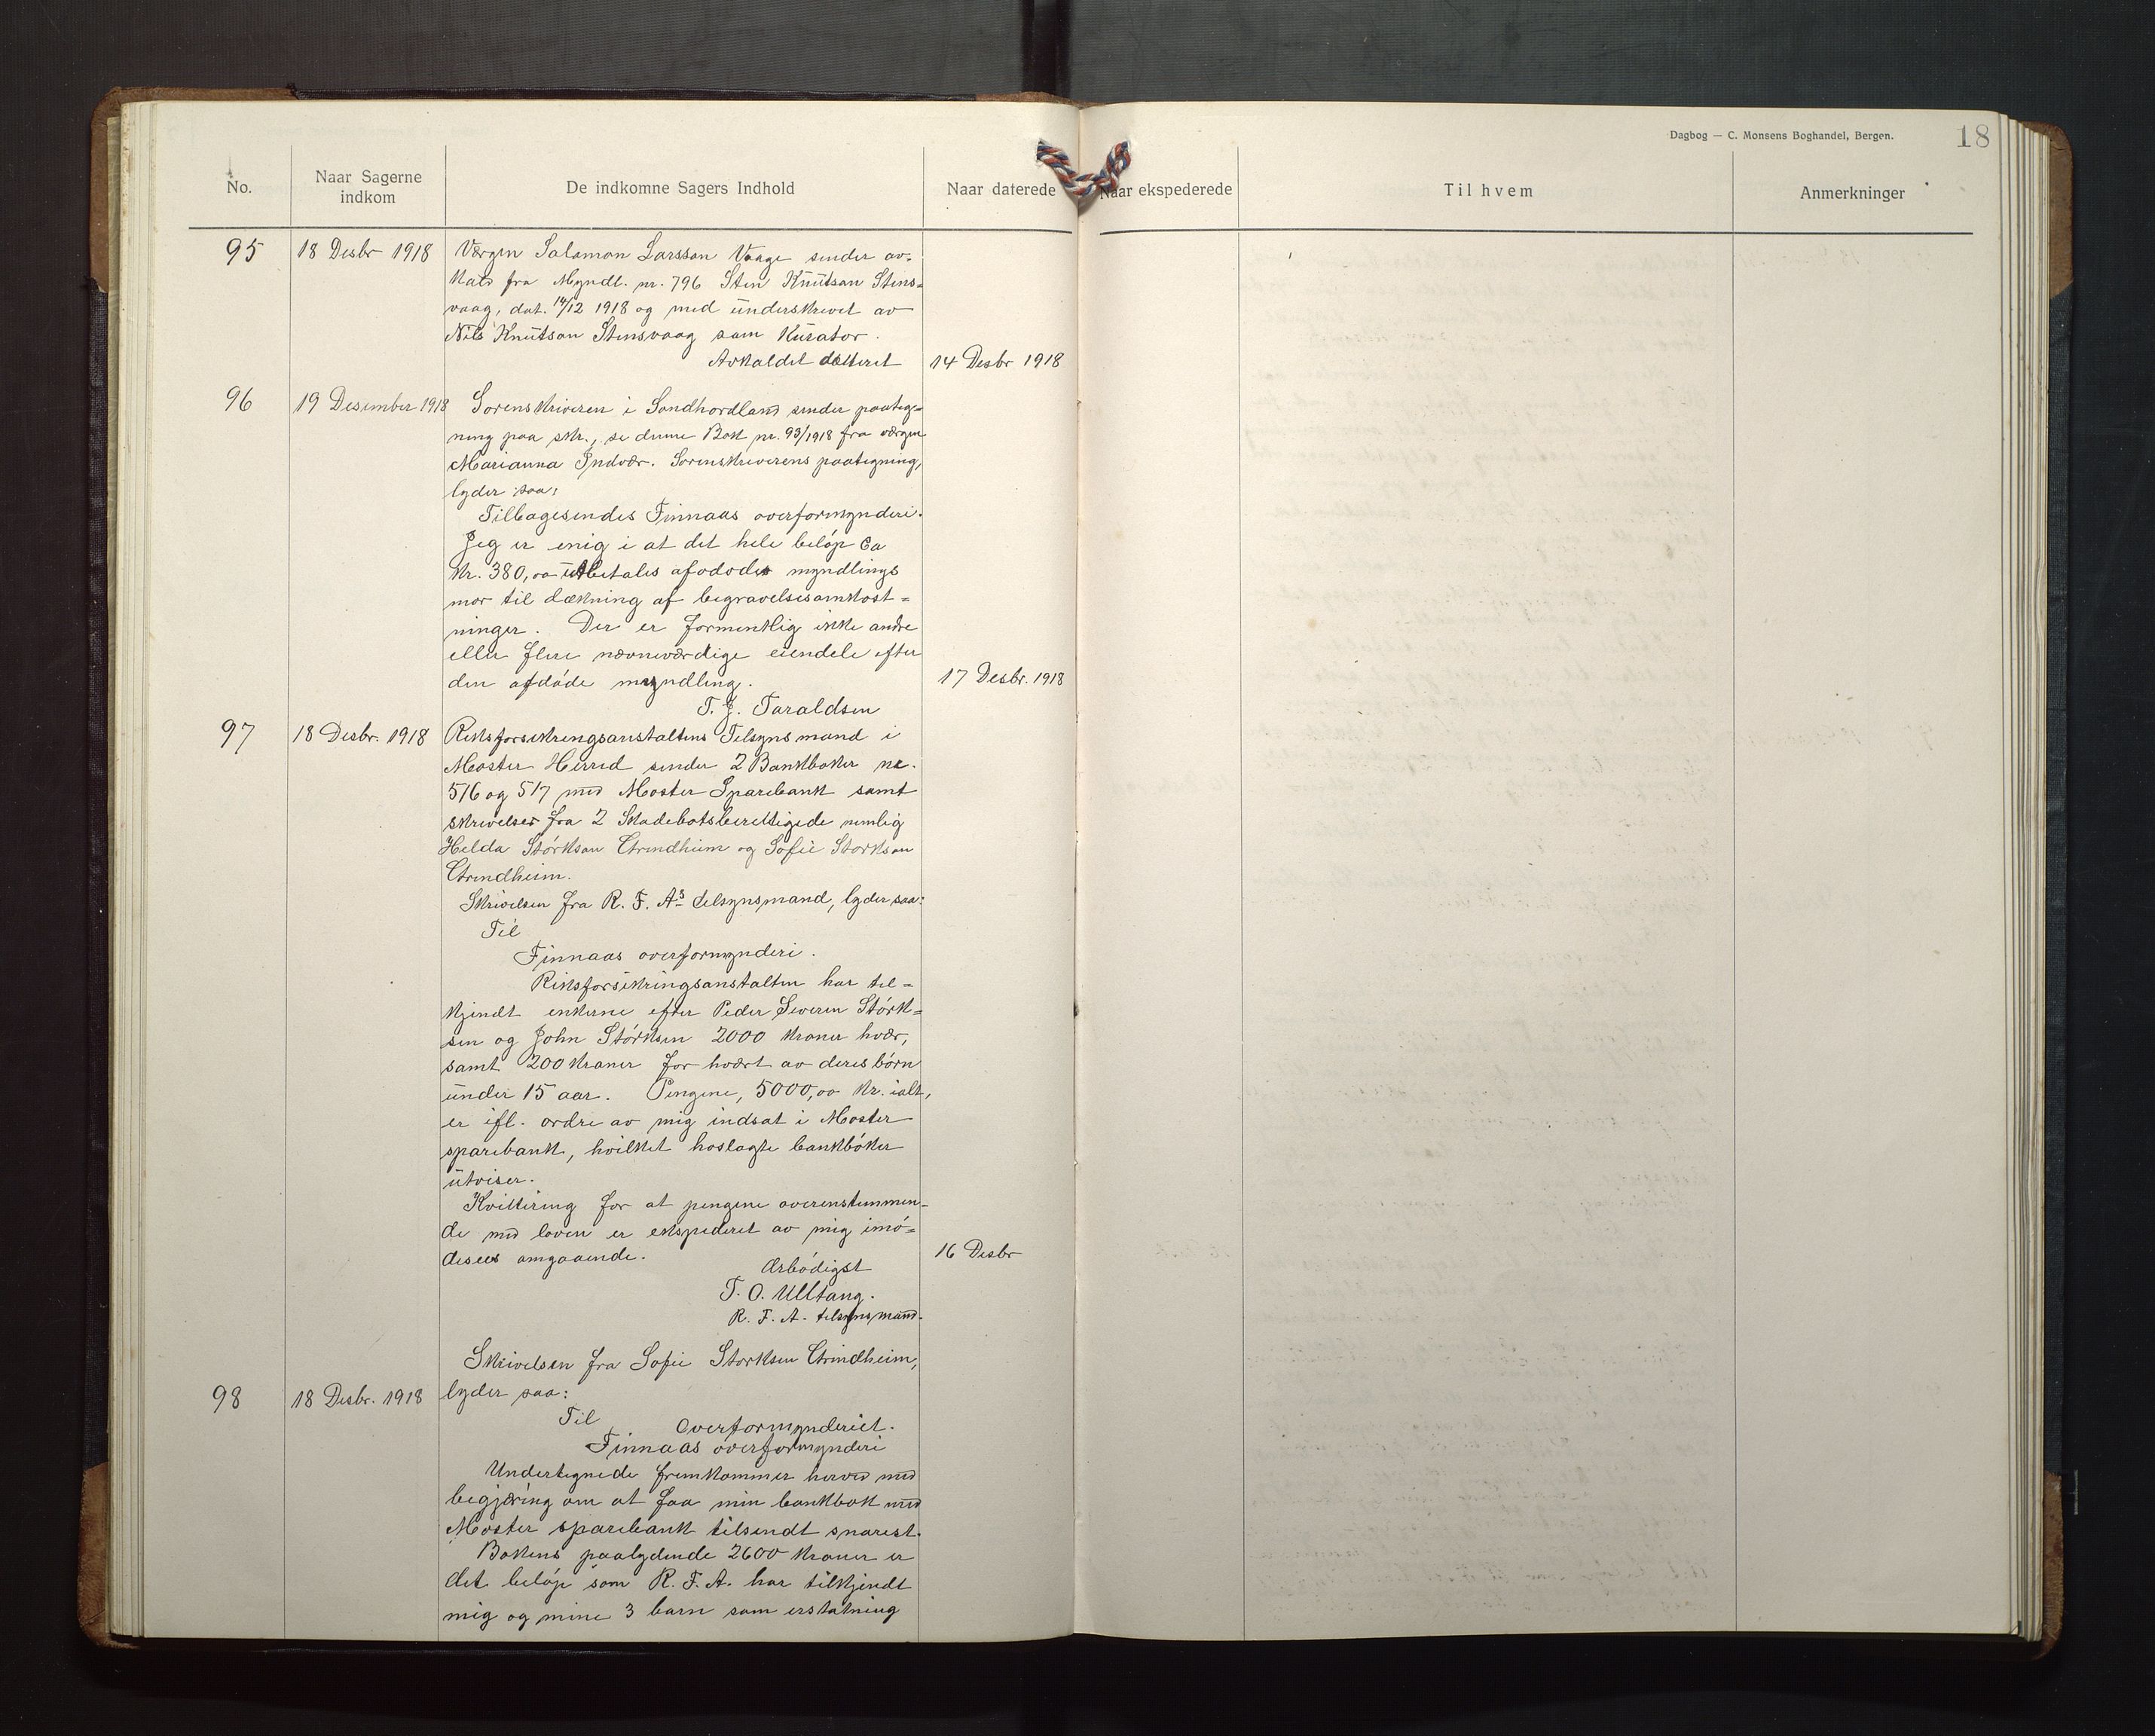 Dagbog — C. Monsens Boghandel, Bergen.
18
No.
Naar Sagerne
indkom
De indkomne Sagers Indhold
Naar daterede
Naar ekspederede
Til hvem
Anmerkninger
95 18 Desbr 1918 Værgen Salamon Larsson Vaage sender av-
kald fra Myndl. nr. 796 Sten Knutson Stens-
vaag, dat. 14/12 1918 og med underskrevet av
Nils Knutson Stensvaag som Kurator.
Avkaldet datteret 14 Desbr 1918
96 19 Desember 1918 Sorenskriveren i Søndhordland sender paateg-
ning paa skr., se denne Bok nr. 93/1918 fra værgen
Marianna Indvær. Sorenskriverens paategning,
lyder saa:
Tilbagesendes Finnaas overformynderi.
Jeg er enig i at det hele beløp ca
kr. 380,00 utbetales afdødes myndlings
mor til dækning af begravelsesomkost-
ninger. Der er formentlig ikke andre
eller flere nævneværdige eiendele efter
den afdøde myndling. 17 Desbr. 1918
T. J. Taraldsen
97 18 Desbr. 1918 Riksforsikringsanstaltens Tilsynsmand i
Moster Herred sender 2 Bankbøker nr.
516 og 517 med Moster Sparebank samt
skrivelser fra 2 Skadebotsberettigede nemlig
Helda Størkson Trindheim og Sofie Storkson
Trindheim.
Skrivelsen fra R. F. As tilsynsmand, lyder saa:
Til
Finnaas overformynderi.
Riksforsikringsanstalten har til-
kjendt enkerne efter Peder Severin Størk-
sen og John Størksen 2000 kroner hver,
samt 200 kroner for hvert av deres børn
under 15 aar. Pengene, 5000,00 kr. ialt,
er ifl. ordre av mig indsat i Moster
sparebank, hvilket hoslagte bankbøker
utviser.
Kvittering for at pengene overenstemmen-
de med loven er ekspederet av mig imø-
desees omgaaende. 16 Desbr
Ærbødigst
T. O. Ulltang.
R. F. A. tilsynsmand.
Skrivelsen fra Sofie Storksen Trindheim,
98 18 Desbr. 1918 lyder saa:
Til
Overformynderiet.
Finnaas overformynderi
Undertegnede fremkommer herved med
begjæring om at faa min bankbok med
Moster sparebank tilsendt snarest.
Bokens paalydende 2600 kroner er
det beløp som R. F. A. har tilkjendt
mig og mine 3 barn som erstatning